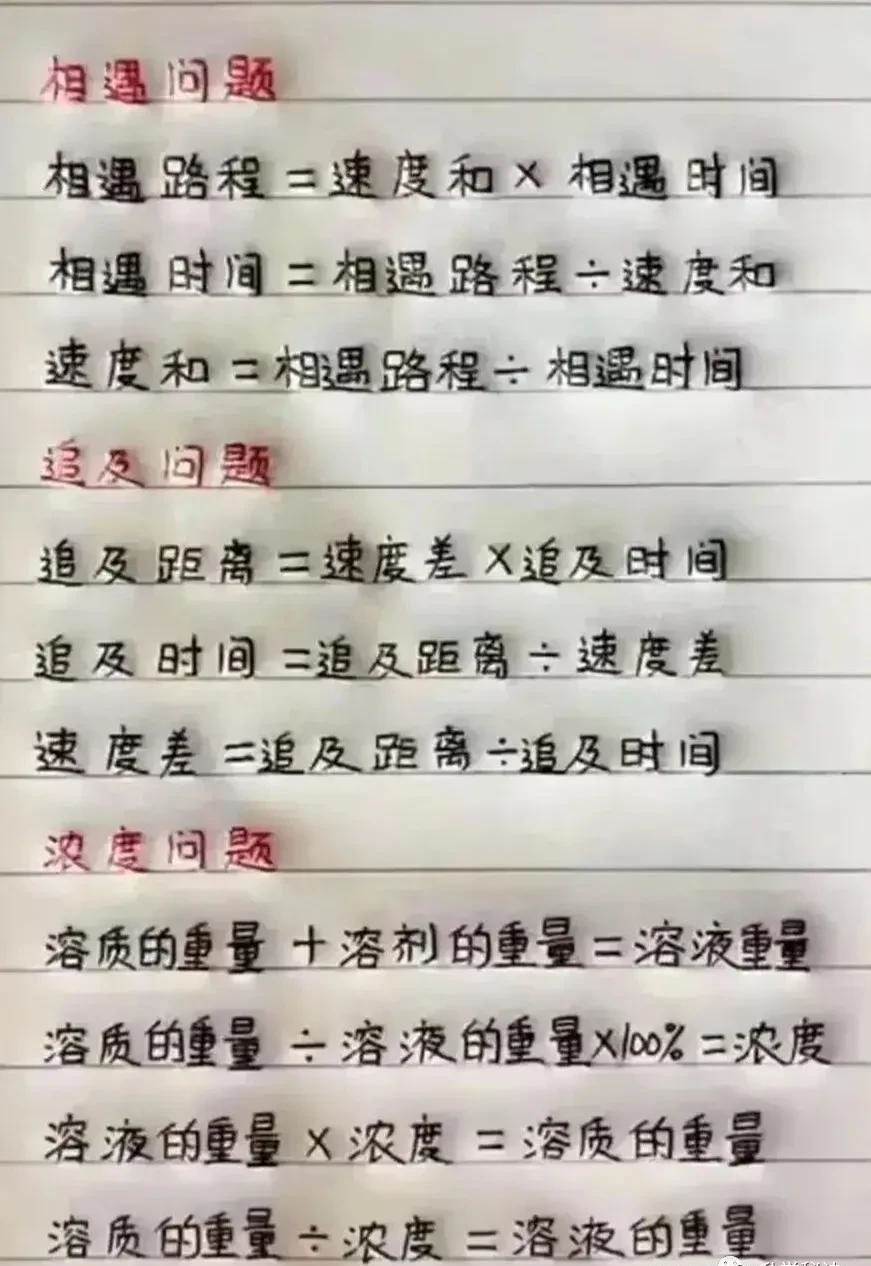 相遇问题
相遇路程=速度和×相遇时间
相遇时间=相遇路程÷速度和
速度和=相遇路程÷相遇时间
追及问题
追及距离=速度差×追及时间
追及时间=追及距离÷速度差
速度差=追及距离÷追及时间
浓度问题
溶质的重量+溶剂的重量=溶液重量
溶质的重量÷溶液的重量×100%=浓度
溶液的重量×浓度=溶质的重量
溶质的重量÷浓度=溶液的重量